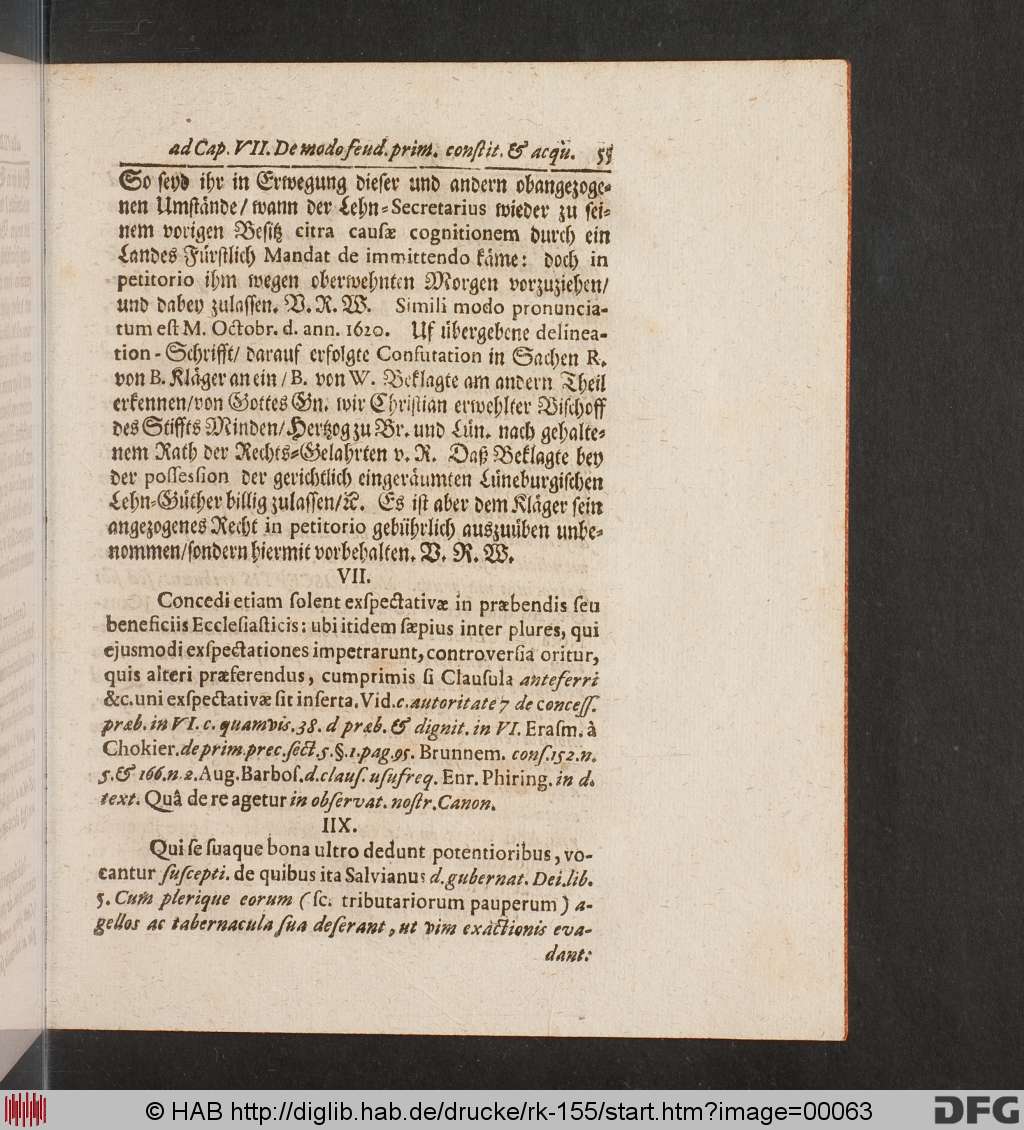 ad Cap. VII. De modo feud. prim. constit. & acqu. 55
So seyd ihr in Erwegung dieser und andern obangezoge-
nen Umstände / wann der Lehn-Secretarius wieder zu sei-
nem vorigen Besitz citra causæ cognitionem durch ein
Landes Fürstlich Mandat de immittendo käme: doch in
petitorio ihm wegen oberwehnten Morgen vorzuziehen/
und dabey zulassen. V. R. W. Simili modo pronuncia-
tum est M. Octobr. d. ann. 1620. Uf übergebene delinea-
tion - Schrifft/ darauf erfolgte Confutation in Sachen R.
von B. Kläger an ein / B. von W. Beklagte am andern Theil
erkennen/von Gottes Gn. wir Christian erwehlter Bischoff
des Stiffts Minden/Hertzog zu Br. und Lün. nach gehalte-
nem Rath der Rechts-Gelahrten v. R. Daß Beklagte bey
der possession der gerichtlich eingeräumten Lüneburgischen
Lehn-Güther billig zulassen/ꝛc. Es ist aber dem Kläger sein
angezogenes Recht in petitorio gebührlich auszuüben unbe-
nommen/sondern hiermit vorbehalten. V. R. W.
VII.
Concedi etiam solent exspectativæ in præbendis seu
beneficiis Ecclesiasticis: ubi itidem sæpius inter plures, qui
ejusmodi exspectationes impetrarunt, controversia oritur,
quis alteri præferendus, cumprimis si Clausula anteferri
&c. uni exspectativæ sit inserta. Vid. c. autoritate 7 de concess.
præb. in VI. c. quamvis. 38. d præb. & dignit. in VI. Erasm. à
Chokier. de prim. prec. sect. 5. §. 1. pag. 95. Brunnem. cons. 152. n.
5. & 166. n. 2. Aug. Barbos. d. claus. usufreq. Enr. Phiring. in d.
text. Quâ de re agetur in observat. nostr. Canon.
IIX.
Qui se suaque bona ultro dedunt potentioribus, vo-
cantur suscepti. de quibus ita Salvianus d. gubernat. Dei. lib.
5. Cum plerique eorum (sc. tributariorum pauperum) a-
gellos ac tabernacula sua deserant, ut vim exactionis eva-
dant:
© HAB http://diglib.hab.de/drucke/rk-155/start.htm?image=00063
DFG